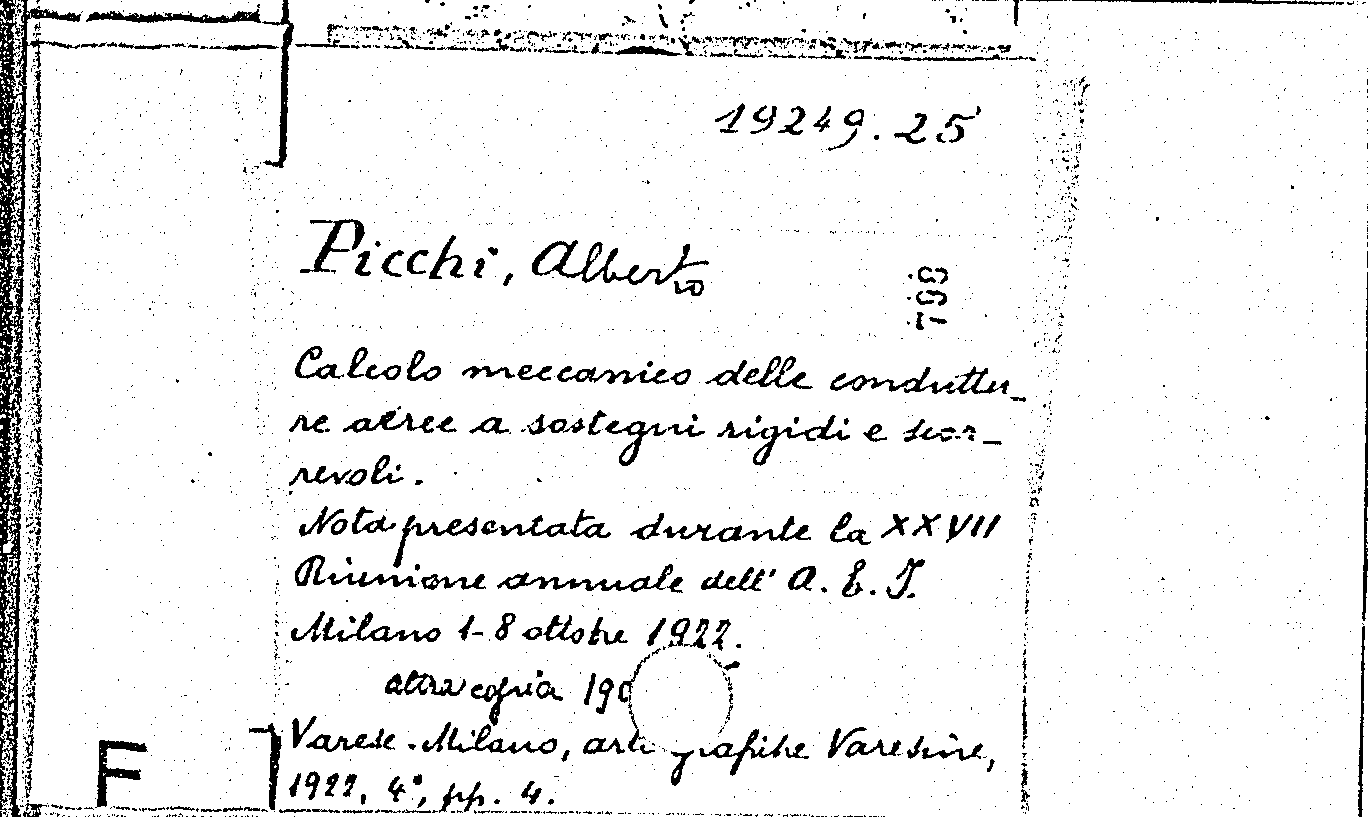 19249.25
Picchi, Alberto
798
Calcolo meccanico delle conduttu-
re aéree a sostegni rigidi e scor-
revoli.
Nota presentata durante la XXVII
Riunione annuale dell' A. E. I.
Milano 1-8 ottobre 1922.
altra copia 190
Varese-Milano, arti grafiche Varesine,
1922, 4°, pp. 4.
F